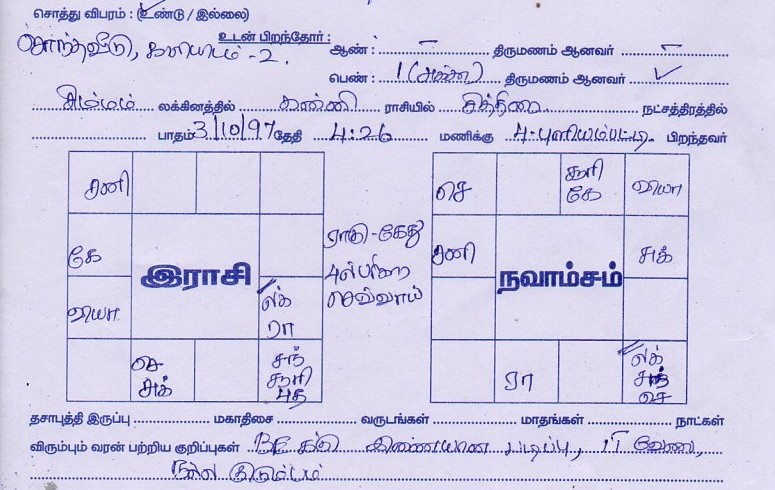 சொத்து விபரம் : (உண்டு / இல்லை)
சொந்தவீடு, கலியாயம் - 2. உடன் பிறந்தோர் : ஆண் : – திருமணம் ஆனவர் –
பெண் : 1 (அக்கா) திருமணம் ஆனவர் ✓
சிம்மம் லக்கினத்தில் கன்னி ராசியில் சித்திரை நட்சத்திரத்தில்
பாதம் 3/10/97 தேதி 4:26 மணிக்கு 4-புளியம்பட்டி. பிறந்தவர்
சனி
கே
வியா
செ
சுக்
லக்
ரா
சந்
சூரி
புத
இராசி
ராகு - கேது
செவ்வாய்
செ
சூரி
கே
வியா
சனி
சுக்
நவாம்சம்
ரா
லக்
சந்
தசாபுத்தி இருப்பு மகாதிசை வருடங்கள் மாதங்கள் நாட்கள்
விரும்பும் வரன் பற்றிய குறிப்புகள் BE க்கு இணையான படிப்பு, IT வேலை,
நல்ல குடும்பம்